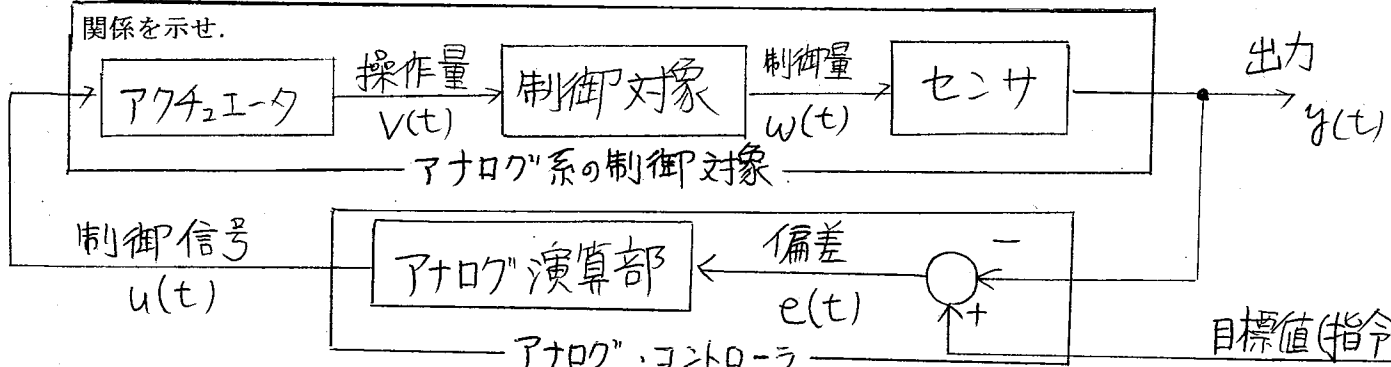 関係を示せ.
アクチュエータ
操作量
v(t)
制御対象
制御量
w(t)
センサ
出力
y(t)
アナログ系の制御対象
制御信号
u(t)
アナログ演算部
偏差
e(t)
−
+
アナログ・コントローラ
目標値(指令